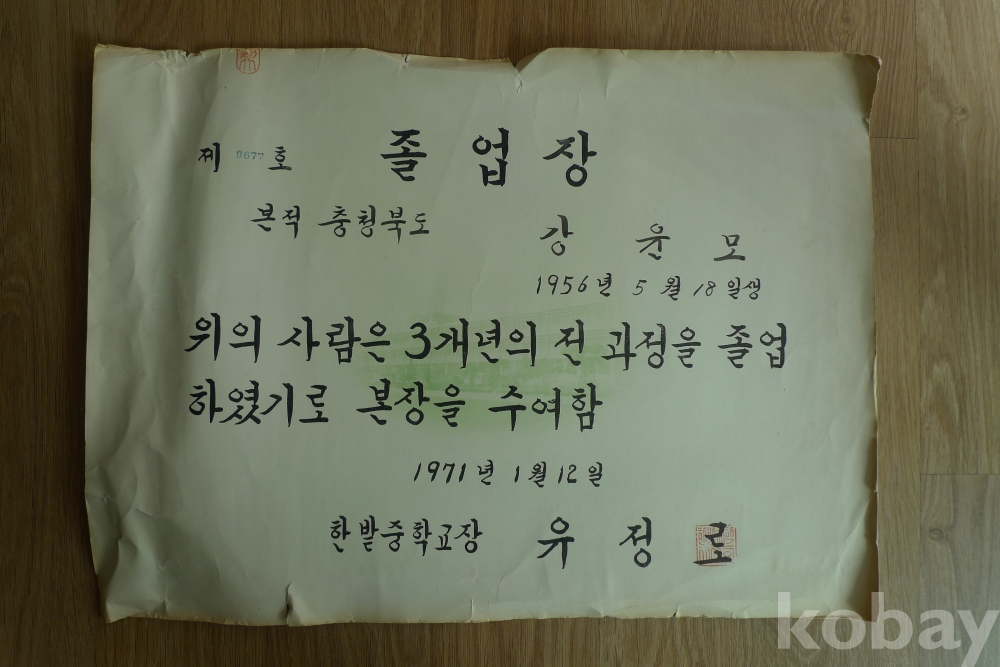 제 9677 호
졸업장
본적 충청북도
강윤모
1956년 5월 18일생
위의 사람은 3개년의 전 과정을 졸업
하였기로 본장을 수여함
1971년 1월 12일
한밭중학교장 유정로
kobay